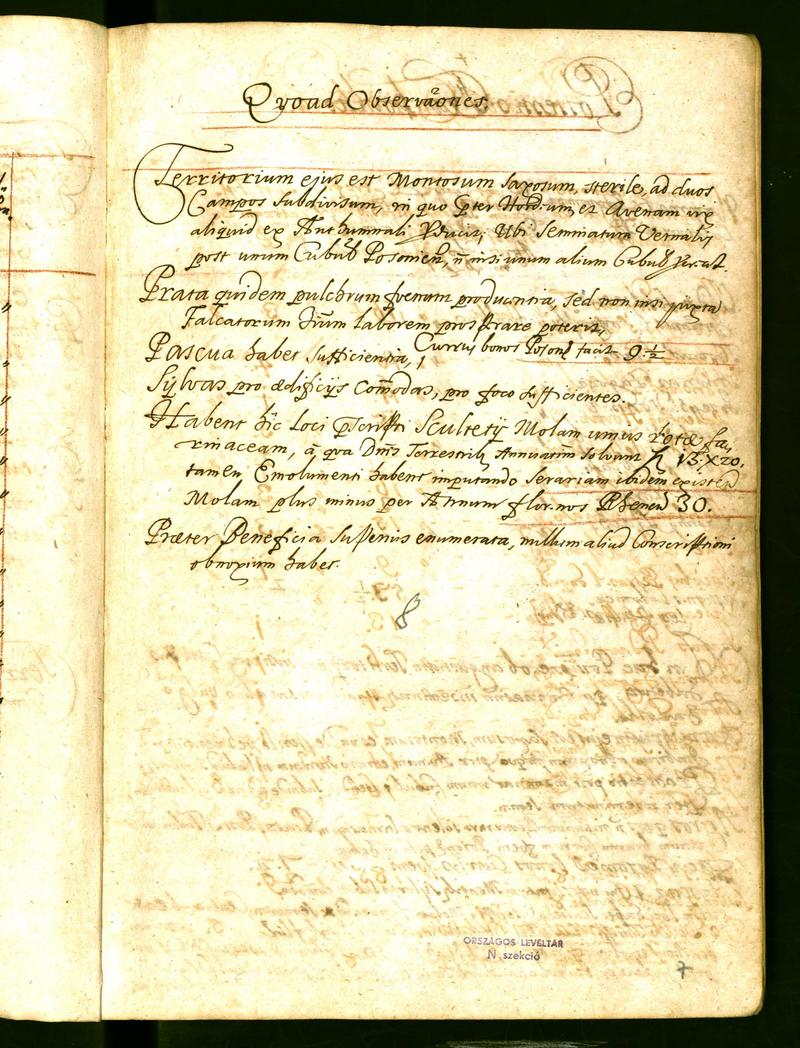 Quoad Observãones.
Territorium ejus est Montosum Saxosum, sterile, ad duos
Campos Subdivisum, in quo p̱ter Hordeum, et Avenam vix
aliquid ex Authumnali p̱ducit; Ubi Seminatura Vernalis
post unum Cubul̃ Posonien̄, ñ nisi unum alium Cubul̃
Prata quidem pulchrum fœnum producentia, sed non nisi juxta
Falcatorum Diũm laborem prosperare poterit,
Pascua habet Sufficientia, Currus bonos Poson̄ facit 9 ½
Sylvas pro ædificijs Com̃odas, pro foco sufficientes.
Habent hic Loci p̱scripti Scultetÿ Molam unius rotæ fa-
rinaceam, à qva Dñis Terrestribꝰ Annuatim Solvunt fl 13. X 20.
tamen Emolumenti habent imputando Serariam ibidem existen̄
Molam plus minus per Annum florenos Rhenen̄ 30.
Præter Beneficia Superius enumerata, nullum aliud Conscriptioni
obnoxium habet.
8
ORSZÁGOS LEVÉLTÁR
N szekció
7